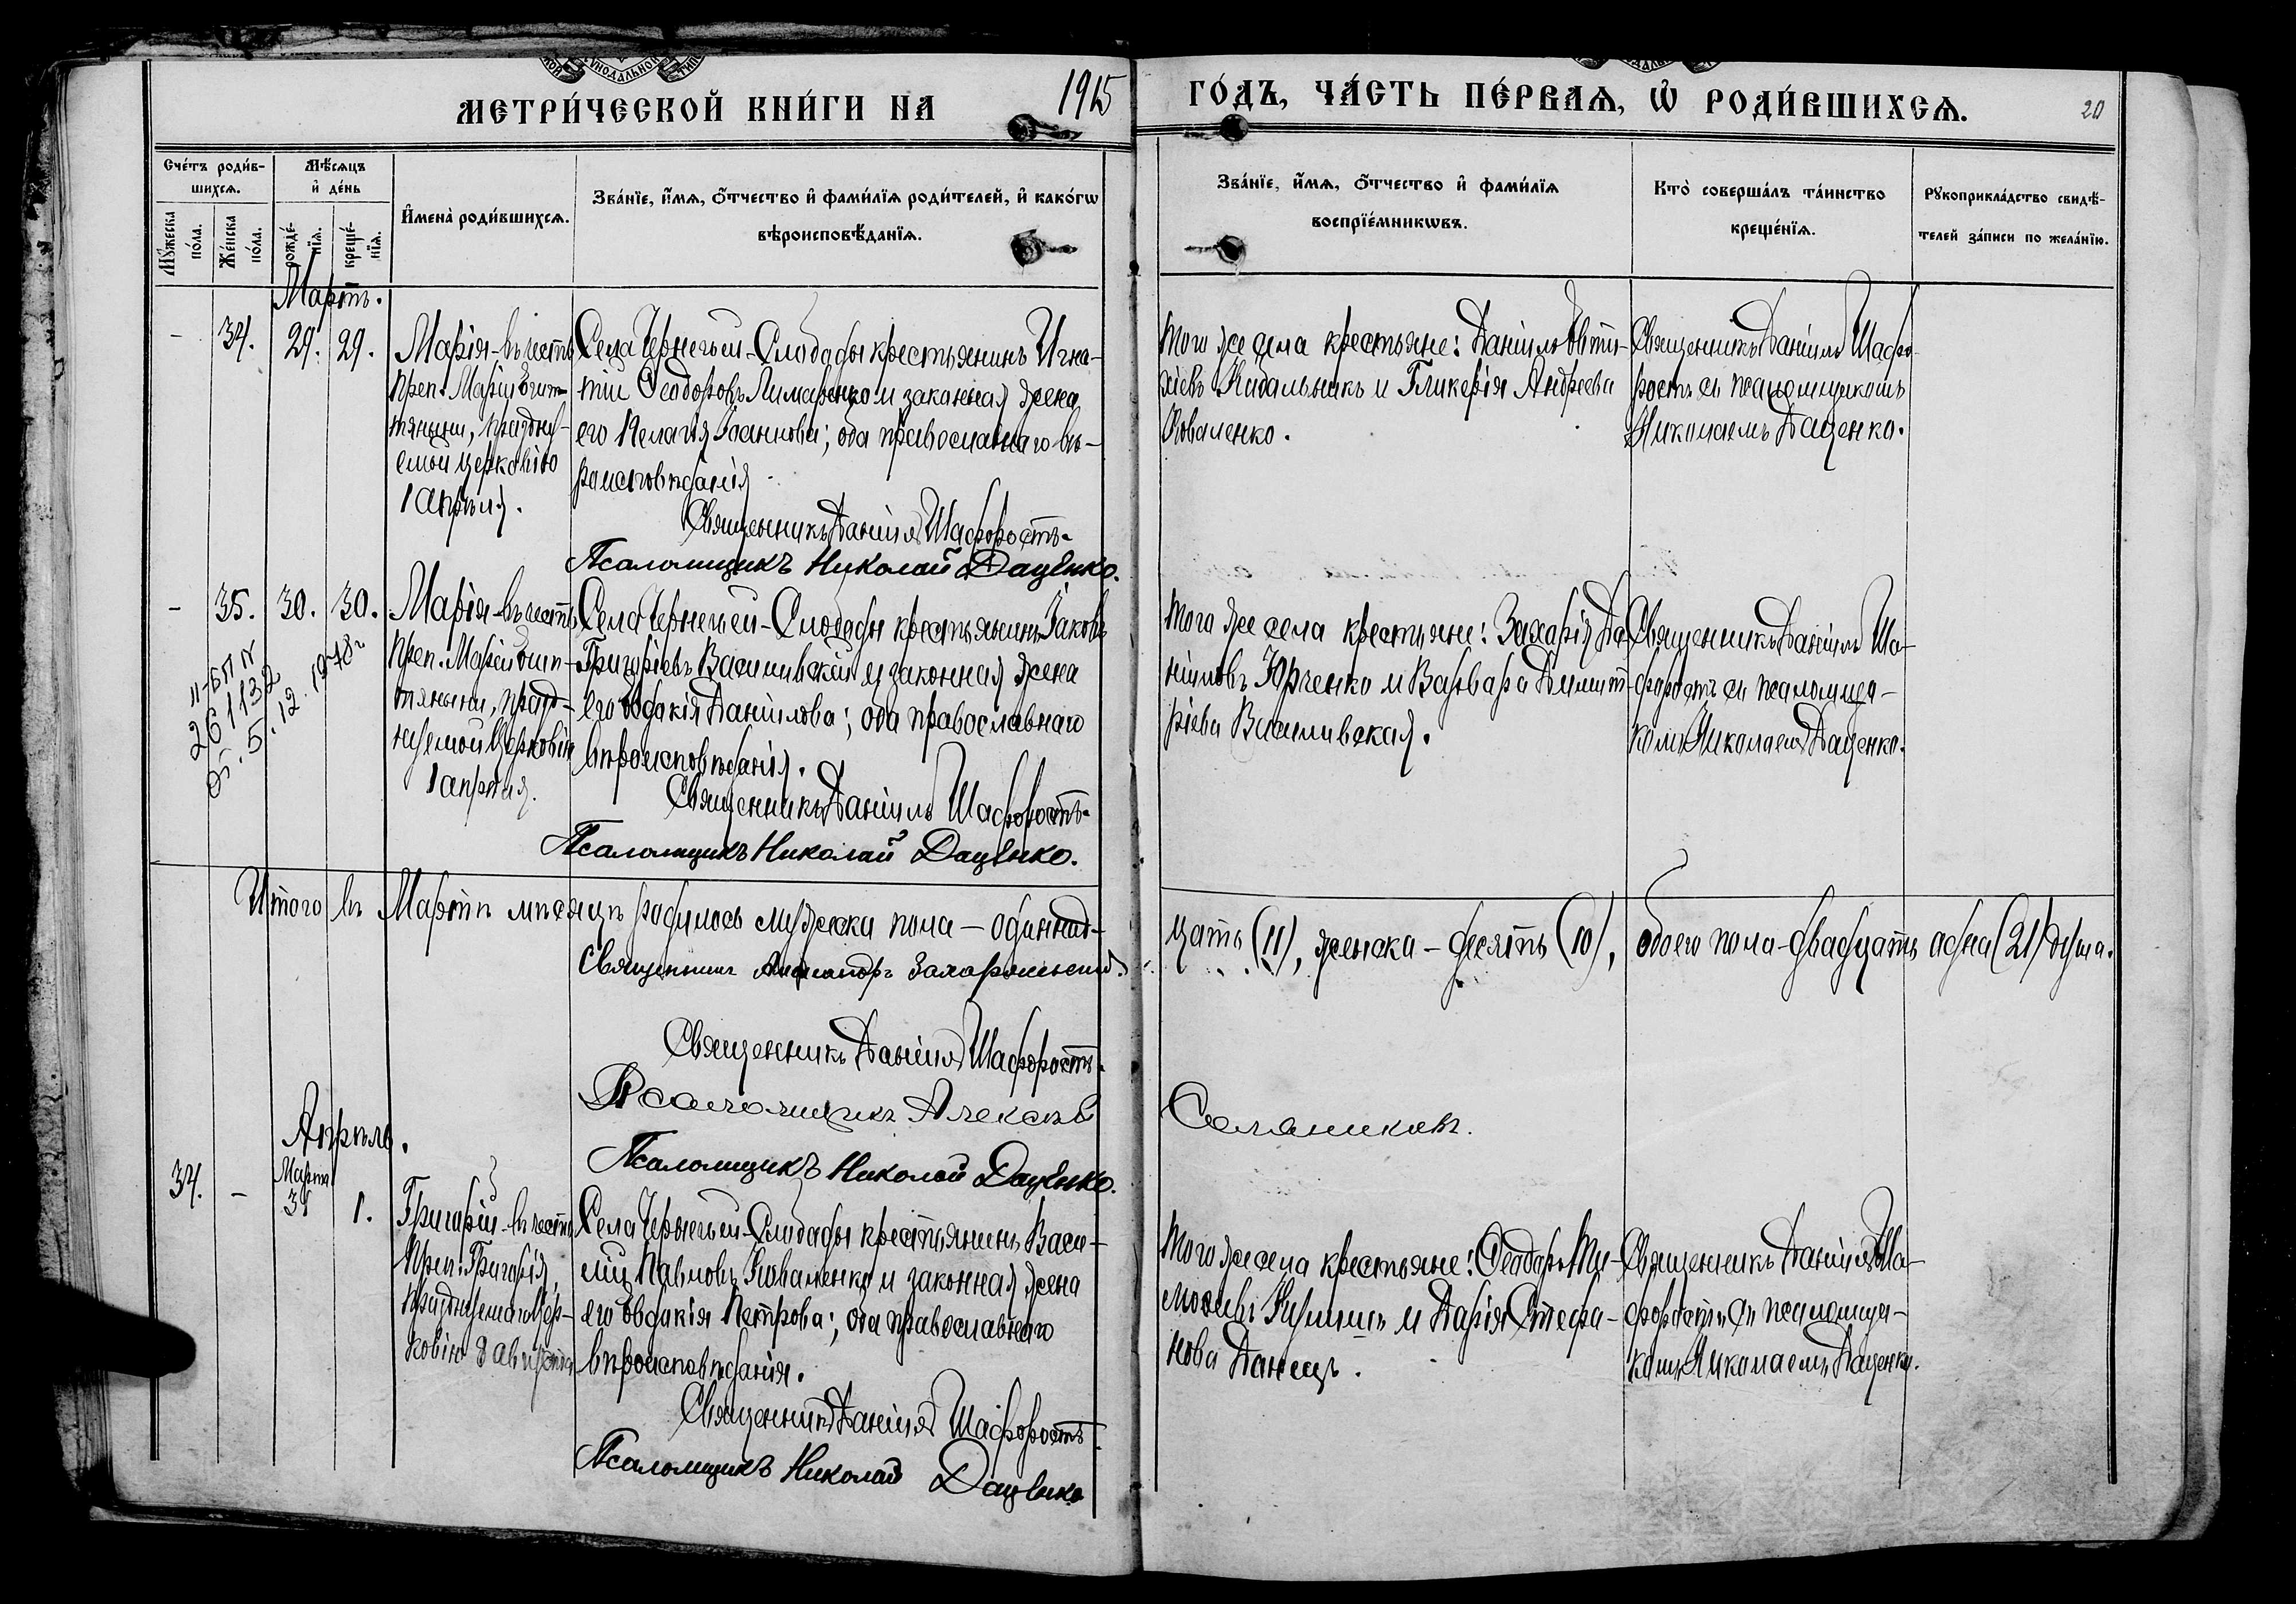 МЕТРИ́ЧЕСКОЙ КНИ́ГИ НА 1915 ГО́ДЪ, ЧА́СТЬ ПЕ́РВАѦ, Ѽ РОДИ́ВШИХСѦ.
20
Сче́тъ роди́в-
шихсѧ.
Мꙋ́жеска
по́ла.
Же́нска
по́ла.
Мѣ́сѧцъ
и҆ де́нь
рожде́-
нїѧ.
креще́-
нїѧ.
И҆мена̀ роди́вшихсѧ.
Зва́нїе, и҆́мѧ, ѻ҆́тчество и҆ фами́лїѧ роди́телей, и҆ како́гѡ
вѣроисповѣ́данїѧ.
Зва́нїе, и҆́мѧ, ѻ҆́тчество и҆ фами́лїѧ
воспрїе́мникѡвъ.
Кто̀ соверша́лъ та́инство
креще́нїѧ.
Рꙋкоприкла́дство свидѣ́-
телей за́писи по жела́нїю.
Мартъ.
-
34.
29.
29.
Марія - въ честь
преп. Маріи Египт-
тяныни, праздну-
емой церковію
1 Апрѣля.
Села Чернечьей-Слободы крестьянинъ Игна-
тій Ѳеодоровъ Лимаренко и законная жена
его Пелагія Іоаннова; оба православнаго вѣ-
роисповѣданія.
Священникъ Даніилъ Шафоростъ.
Псаломщикъ Николай Даценко.
Того же села крестьяне: Даніилъ Евти-
хіевъ Кибальникъ и Гликерія Андреева
Коваленко.
Священникъ Даніилъ Шафо-
ростъ съ псаломщикомъ
Николаемъ Даценко.
-
35.
30.
30.
II-БП №
261132
от. 5.12.1948г
Марія - въ честь
преп. Маріи Египт-
тяныни, празд-
нуемой церковію
1 апрѣля.
Села Чернечьей-Слободы крестьянинъ Іаковъ
Григоріевъ Василивскій и законная жена
его Евдокія Даніилова; оба православнаго
вѣроисповѣданія.
Священникъ Даніилъ Шафоростъ.
Псаломщикъ Николай Даценко.
Того же села крестьяне: Захарія Да-
ніиловъ Юрченко и Варвара Димит-
ріева Василивская.
Священникъ Даніилъ Ша-
форостъ съ псаломщи-
комъ Николаемъ Даценко.
Итого въ Мартѣ мѣсяцѣ родилось мужеска пола - одиннад-
цать (11), женска - десять (10), обоего пола - двадцать одна (21) душа.
Священникъ Александръ
Священникъ Даніилъ Шафоростъ.
Псаломщикъ Алексѣй
Псаломщикъ Николай Даценко.
Апрѣль.
34.
-
Марта
31
1.
Григорій - въ честь
преп. Григорія,
празднуемаго цер-
ковію
Села Чернечьей-Слободы крестьянинъ Васи-
лій Павловъ Коваленко и законная жена
его Евдокія Петрова; оба православнаго
вѣроисповѣданія.
Священникъ Даніилъ Шафоростъ.
Псаломщикъ Николай Даценко
Того же села крестьяне: Ѳеодоръ Ти-
моѳеевъ и Дарія Стефа-
нова Данецъ.
Священникъ Даніилъ Ша-
форостъ съ псаломщи-
комъ Николаемъ Даценко.